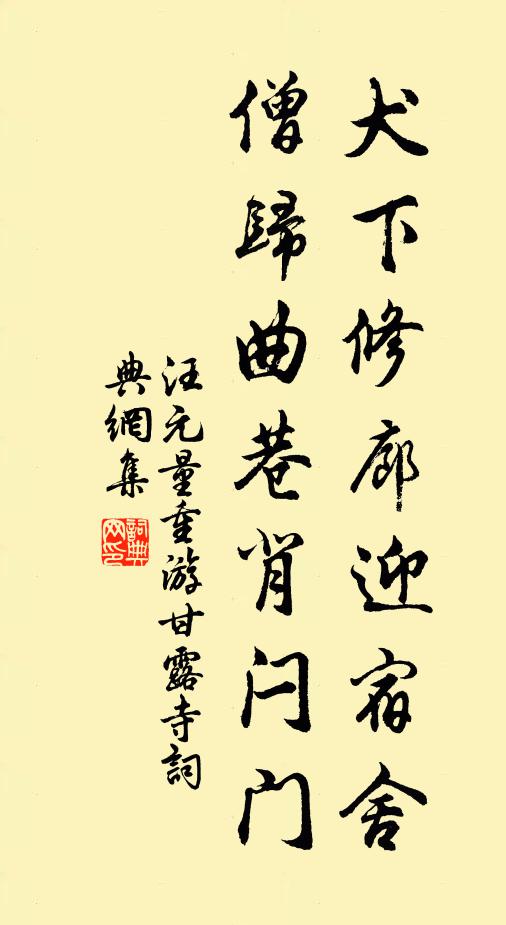 犬下修廊迎宿舍
僧歸曲巷背闩门
汪元量重游甘露寺詞
典網集
詞典
网印